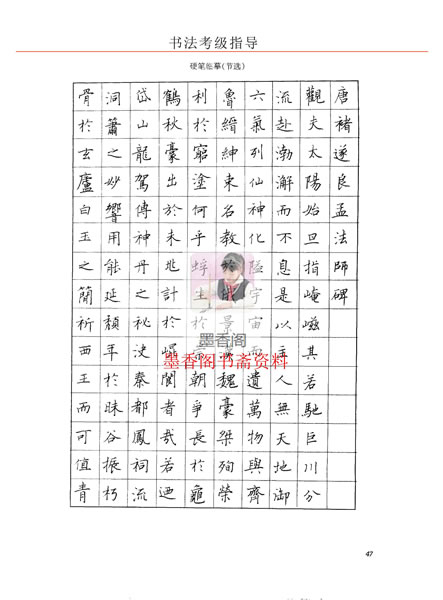 书法考级指导
硬笔临摹(节选)
唐褚遂良孟法師碑
觀夫太陽始旦指崦嵫其若馳巨川分
流赴渤澥而不息是以至人無天地御
六氣列仙神化隘宇宙而遺萬物與齊
魯縉紳束名教於俄景魏豪桀殉榮
利於窮塗何乎蜉生於朝爭長於龜
鶴秋豪出於未兆計於崐閬者哉若迺
岱山龍駕傳神丹之祕決秦都鳳祠流
洞簫之妙響用能延頹年於昧谷振朽
骨於玄廬白玉之簡祈西王而可值青
墨香阁
墨香阁书斋资料
47